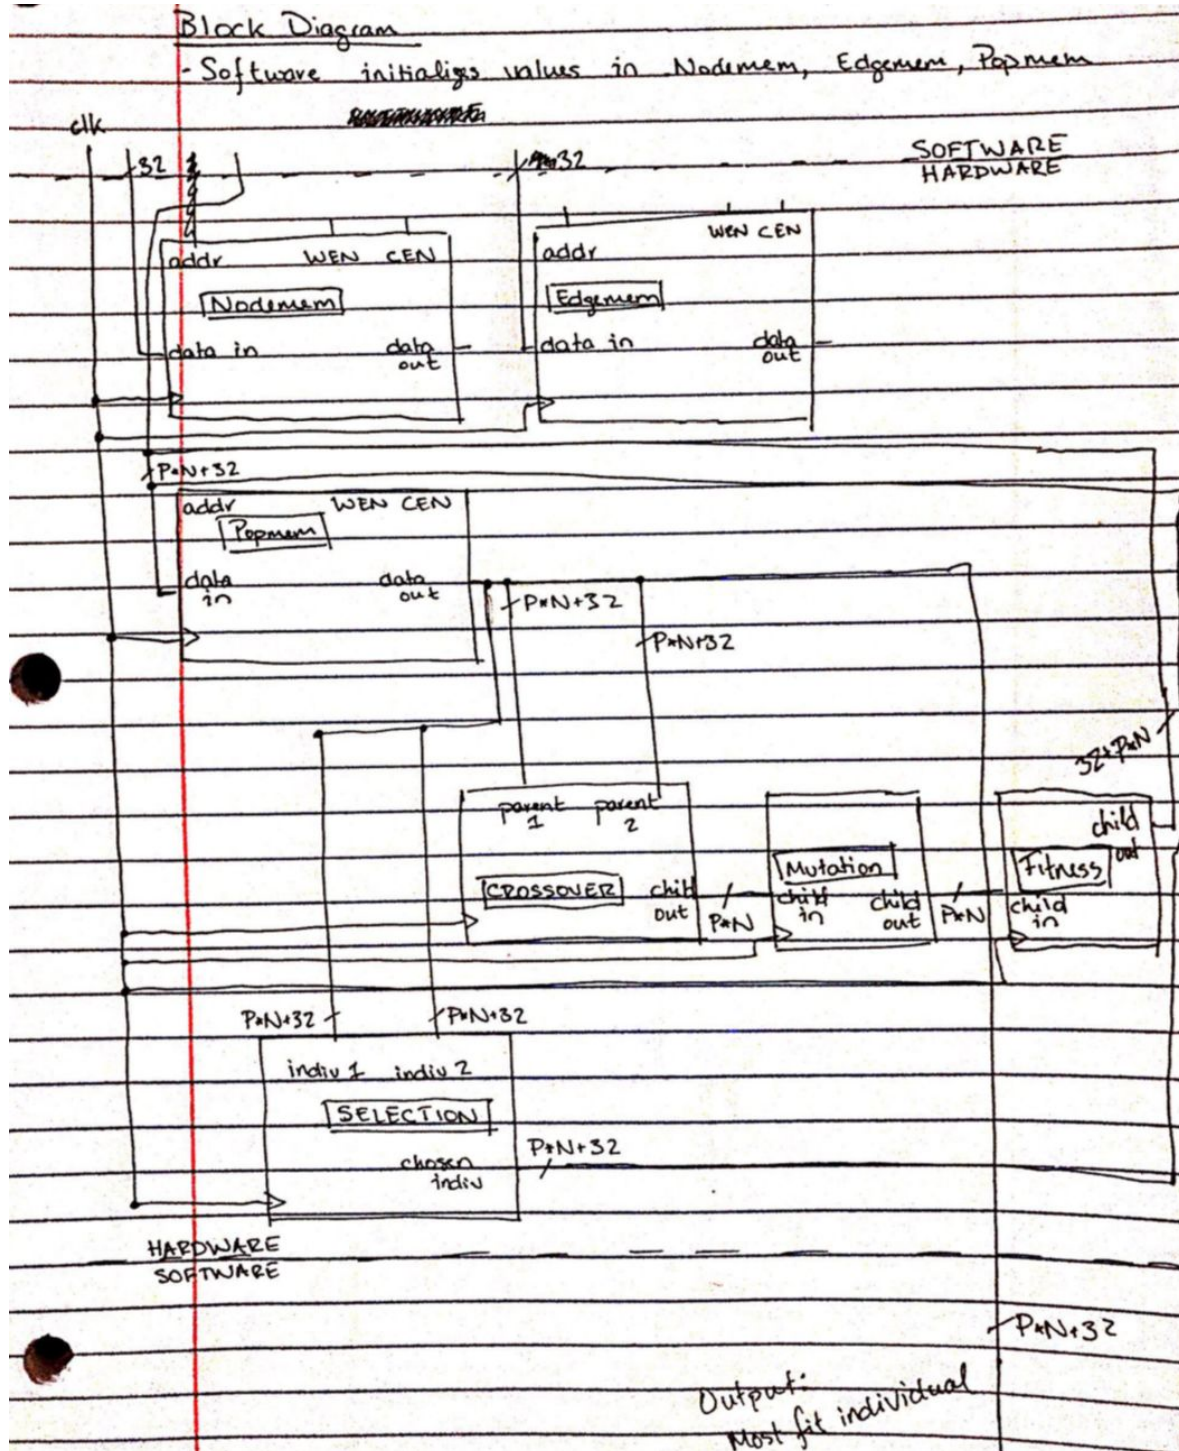 Block Diagram
- Software initializes values in Nodemem, Edgemem, Popmem
clk
32
32
SOFTWARE
HARDWARE
addr WEN CEN
Nodemem
data in data out
WEN CEN
addr
Edgemem
data in data out
P*N+32
addr WEN CEN
Popmem
data in data out
P*N+32
P*N+32
32+P*N
parent 1 parent 2
CROSSOVER
child out
P*N
Mutation
child in child out
P*N
child out
Fitness
child in
P*N+32 P*N+32
indiv 1 indiv 2
SELECTION
chosen indiv
P*N+32
HARDWARE
SOFTWARE
P*N+32
Output:
Most fit individual